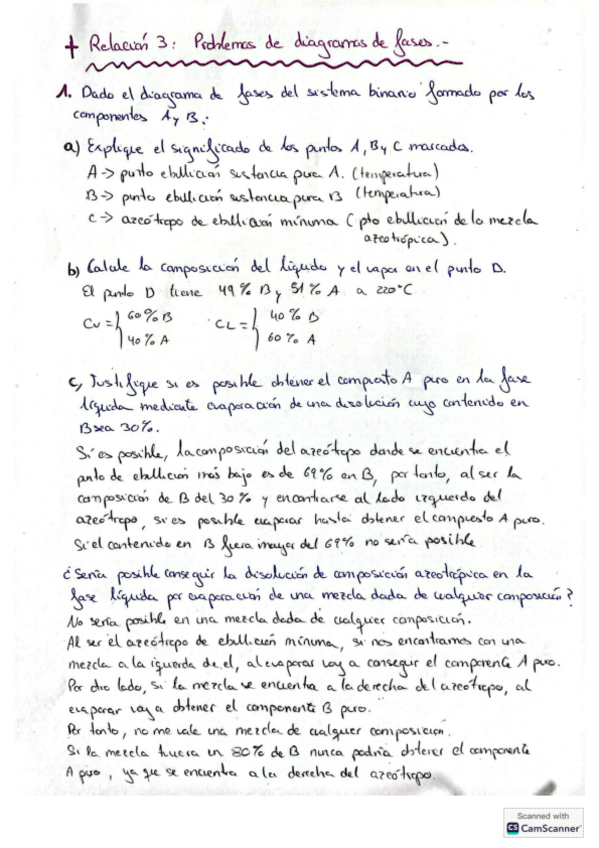 + Relación 3: Problemas de diagramas de fases.-
1. Dado el diagrama de fases del sistema binario formado por los
componentes A y B:
a) Explique el significado de los puntos A, B y C marcados.
A -> punto ebullición sustancia pura A. (temperatura)
B -> punto ebullición sustancia pura B (temperatura)
C -> azeótropo de ebullición mínima (pto ebullición de la mezcla
azeotrópica).
b) Calcule la composición del líquido y el vapor en el punto D.
El punto D tiene 49% B y 51% A a 220°C
Cv = { 60% B CL = { 40% B
40% A 60% A
c) Justifique si es posible obtener el compuesto A puro en la fase
líquida mediante evaporación de una disolución cuyo contenido en
B sea 30%.
Si es posible, la composición del azeótropo donde se encuentra el
pnto de ebullición más bajo es de 69% en B, por tanto, al ser la
composición de B del 30% y encontrarse al lado izquierdo del
azeótropo, si es posible evaporar hasta obtener el compuesto A puro.
Si el contenido en B fuera mayor del 69% no sería posible
¿Sería posible conseguir la disolución de composición azeotrópica en la
fase líquida por evaporación de una mezcla dada de cualquier composición?
No sería posible en una mezcla dada de cualquier composición.
Al ser el azeótropo de ebullición mínima, si nos encontramos con una
mezcla a la izquierda de el, al evaporar voy a conseguir el componente A puro.
Por otro lado, si la mezcla se encuentra a la derecha del azeótropo, al
evaporar voy a obtener el componente B puro.
Por tanto, no me vale una mezcla de cualquier composición.
Si la mezcla tuviera un 80% de B nunca podría obtener el componente
A puro, ya que se encuentra a la derecha del azeótropo.
Scanned with
CS CamScanner